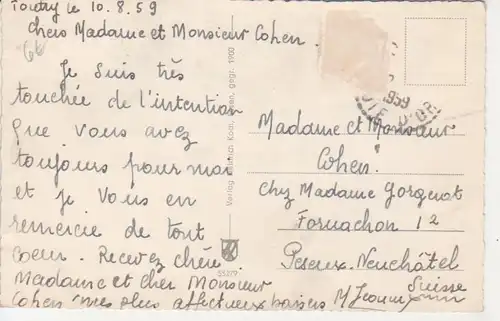 le 10.8.59
Chers Madame et Monsieur Cohen.
Je suis très
touchée de l'intention
que vous avez
toujours pour moi
et je vous en
remercie de tout
coeur. Recevez chère
Madame et cher Monsieur
Cohen mes plus affectueux baisers
1959
Madame et Monsieur
Cohen
Chez Madame Gorgerat
Fornachon 12
Peseux. Neuchâtel
Suisse
Verlag gegr. 1900